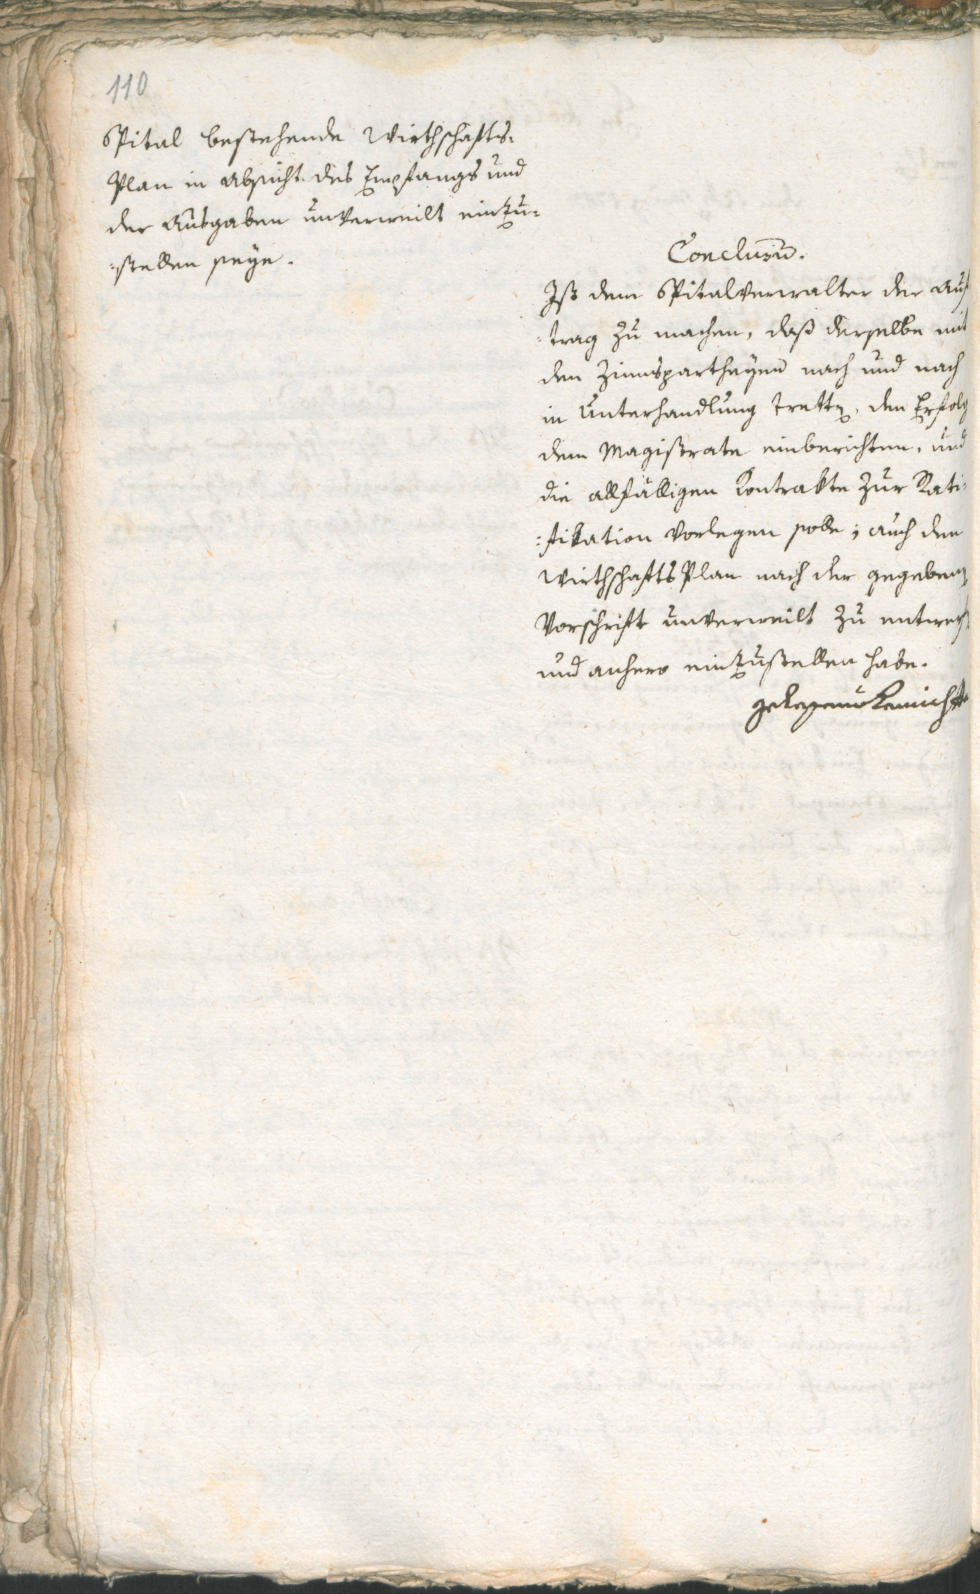 110
Spital bestehende Wirthschafts-
Plan in Absicht des Empfangs und
der Ausgaben unverweilt einzu-
:stellen seye.
Conclusum.
Ist dem Spitalverwalter der Auf
:trag zu machen, daß derselbe mit
den Zinnspartheyen nach und nach
in Unterhandlung trette, den Erfolg
dem Magistrate einberichten, und
die allfälligen Kontrakte zur Rati-
:fikation vorlegen solle; auch den
Wirthschafts Plan nach der gegebenen
Vorschrift unverweilt zu entwerfen
und anhero einzustellen habe.